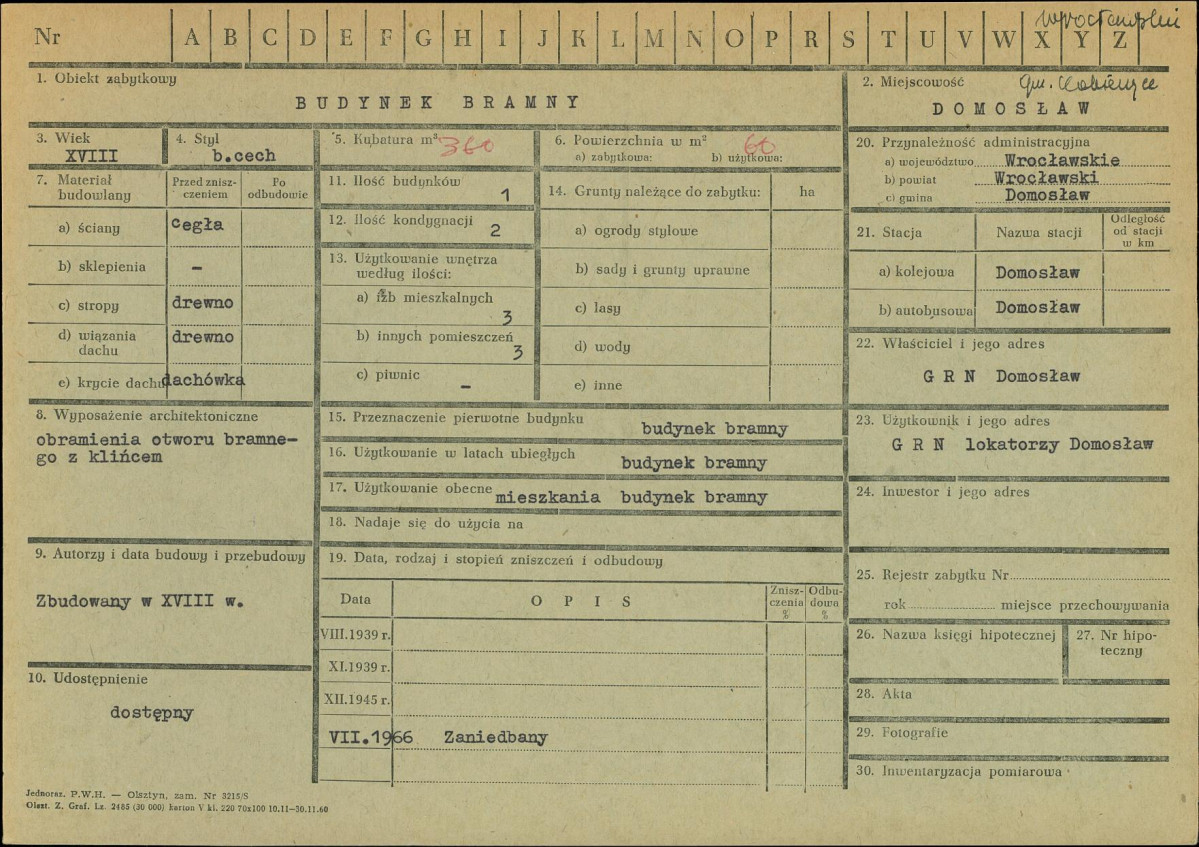 Nr A B C D E F G H I J K L M N O P R S T U V W X Y Z
wrocławskie
1. Obiekt zabytkowy
BUDYNEK BRAMNY
2. Miejscowość
gm. Kobierzyce
DOMOSŁAW
3. Wiek
XVIII
4. Styl
b.cech
5. Kubatura m³ 360
6. Powierzchnia w m² 60
a) zabytkowa: b) użytkowa:
7. Materiał budowlany
Przed zniszczeniem
Po odbudowie
a) ściany cegła
b) sklepienia –
c) stropy drewno
d) wiązania dachu drewno
e) krycie dachu dachówka
8. Wyposażenie architektoniczne
obramienia otworu bramne-
go z klińcem
9. Autorzy i data budowy i przebudowy
Zbudowany w XVIII w.
10. Udostępnienie
dostępny
11. Ilość budynków 1
12. Ilość kondygnacji 2
13. Użytkowanie wnętrza
według ilości:
a) izb mieszkalnych
3
b) innych pomieszczeń
3
c) piwnic –
14. Grunty należące do zabytku: ha
a) ogrody stylowe
b) sady i grunty uprawne
c) lasy
d) wody
e) inne
15. Przeznaczenie pierwotne budynku
budynek bramny
16. Użytkowanie w latach ubiegłych
budynek bramny
17. Użytkowanie obecne mieszkania budynek bramny
18. Nadaje się do użycia na
19. Data, rodzaj i stopień zniszczeń i odbudowy
Data OPIS Zniszczenia % Odbudowa %
VIII.1939 r.
XI.1939 r.
XII.1945 r.
VII.1966 Zaniedbany
20. Przynależność administracyjna
a) województwo Wrocławskie
b) powiat Wrocławski
c) gmina Domosław
21. Stacja Nazwa stacji Odległość od stacji w km
a) kolejowa Domosław
b) autobusowa Domosław
22. Właściciel i jego adres
G R N Domosław
23. Użytkownik i jego adres
G R N lokatorzy Domosław
24. Inwestor i jego adres
25. Rejestr zabytku Nr
rok miejsce przechowywania
26. Nazwa księgi hipotecznej
27. Nr hipo-
teczny
28. Akta
29. Fotografie
30. Inwentaryzacja pomiarowa
Jednoraz. P.W.H. — Olsztyn, zam. Nr 3215/S
Olszt. Z. Graf. Lz. 2485 (30 000) karton V kl. 220 70x100 10.11—30.11.60